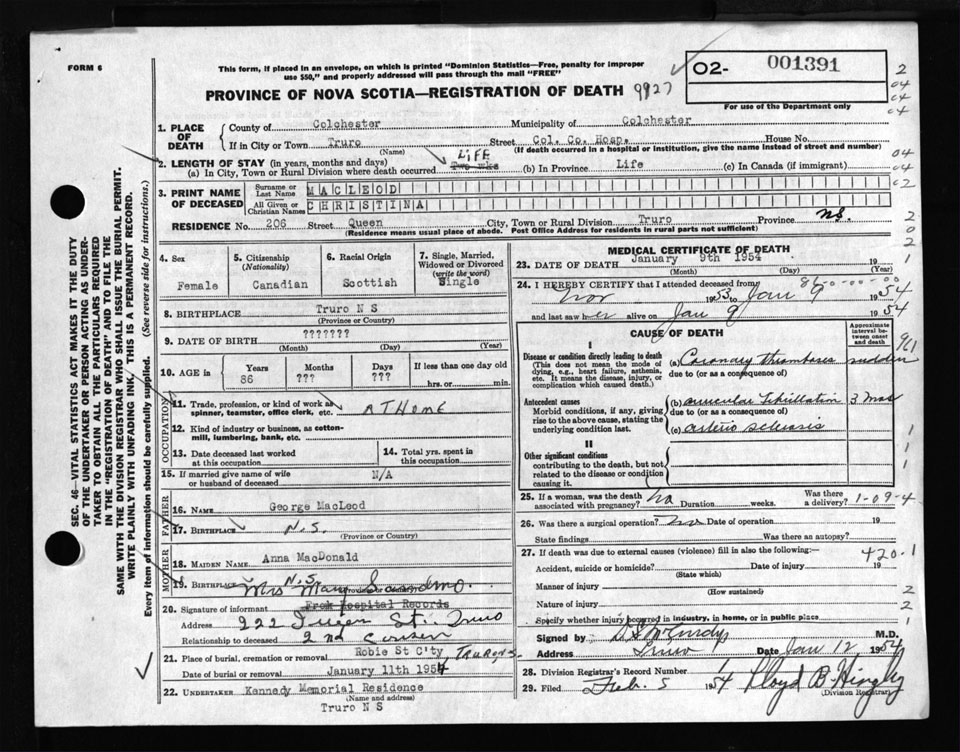 FORM 6
This form, if placed in an envelope, on which is printed "Dominion Statistics—Free, penalty for improper
use $50," and properly addressed will pass through the mail "FREE"
O2- 001391
PROVINCE OF NOVA SCOTIA—REGISTRATION OF DEATH 9927
For use of the Department only
2
04
04
04
1. PLACE OF DEATH
County of Colchester Municipality of Colchester
If in City or Town Truro Street Col. Co. Hosp. House No.
(Name) (If death occurred in a hospital or institution, give the name instead of street and number)
2. LENGTH OF STAY (in years, months and days) LIFE
(a) In City, Town or Rural Division where death occurred Two wks (b) In Province Life (c) In Canada (if immigrant)
04
04
02
3. PRINT NAME OF DECEASED
Surname or Last Name MACLEOD
All Given or Christian Names CHRISTINA
RESIDENCE No. 206 Street Queen City, Town or Rural Division Truro Province N.S.
(Residence means usual place of abode. Post Office Address for residents in rural parts not sufficient)
2
0
2
4. Sex
Female
5. Citizenship (Nationality)
Canadian
6. Racial Origin
Scottish
7. Single, Married, Widowed or Divorced (write the word)
Single
8. BIRTHPLACE Truro N S
(Province or Country)
9. DATE OF BIRTH ???????
(Month) (Day) (Year)
10. AGE in Years Months Days If less than one day old
86 ??? ??? hrs. or min.
OCCUPATION
11. Trade, profession, or kind of work as spinner, teamster, office clerk, etc. AT HOME
12. Kind of industry or business, as cotton-mill, lumbering, bank, etc.
13. Date deceased last worked at this occupation
14. Total yrs. spent in this occupation
15. If married give name of wife or husband of deceased N/A
FATHER
16. NAME George MacLeod
17. BIRTHPLACE N.S.
(Province or Country)
MOTHER
18. MAIDEN NAME Anna MacDonald
19. BIRTHPLACE N.S.
(Province or Country)
Mrs Mary
20. Signature of informant From Hospital Records
Address 222 Queen St. Truro
Relationship to deceased 2nd cousin
21. Place of burial, cremation or removal Robie St C'ty TRURO N.S.
Date of burial or removal January 11th 1954
22. UNDERTAKER Kennedy Memorial Residence
(Name and address)
Truro N S
MEDICAL CERTIFICATE OF DEATH
23. DATE OF DEATH January 9th 1954 19
(Month) (Day) (Year)
24. I HEREBY CERTIFY that I attended deceased from 86-00-00-00
Nov 1953 to Jan 9 1954
and last saw her alive on Jan 9 1954
CAUSE OF DEATH
Approximate interval between onset and death
Disease or condition directly leading to death
(This does not mean the mode of dying, e.g., heart failure, asthenia, etc. It means the disease, injury, or complication which caused death.)
(a) Coronary thrombosis sudden
due to (or as a consequence of)
Antecedent causes
Morbid conditions, if any, giving rise to the above cause, stating the underlying condition last.
(b) auricular fibrillation 3 mos
due to (or as a consequence of)
(c) arterio sclerosis
II
Other significant conditions
contributing to the death, but not related to the disease or condition causing it.
25. If a woman, was the death associated with pregnancy? No Duration weeks. Was there a delivery? 1-09-4
26. Was there a surgical operation? No Date of operation 19
State findings Was there an autopsy?
27. If death was due to external causes (violence) fill in also the following:— 420-1
Accident, suicide or homicide? Date of injury 19
(State which)
Manner of injury
(How sustained)
Nature of injury
Specify whether injury occurred in industry, in home, or in public place
Signed by D S McCurdy M.D.
Address Truro Date Jan 12, 1954
28. Division Registrar's Record Number 1
29. Filed Feb. 5 1954 Lloyd B.
(Division Registrar)
SEC. 46—VITAL STATISTICS ACT MAKES IT THE DUTY
OF THE UNDERTAKER OR PERSON ACTING AS UNDER-
TAKER TO OBTAIN ALL THE PARTICULARS REQUIRED
IN THE "REGISTRATION OF DEATH" AND TO FILE THE
SAME WITH THE DIVISION REGISTRAR WHO SHALL ISSUE THE BURIAL PERMIT.
WRITE PLAINLY WITH UNFADING INK. THIS IS A PERMANENT RECORD.
Every item of information should be carefully supplied. (See reverse side for instructions.)